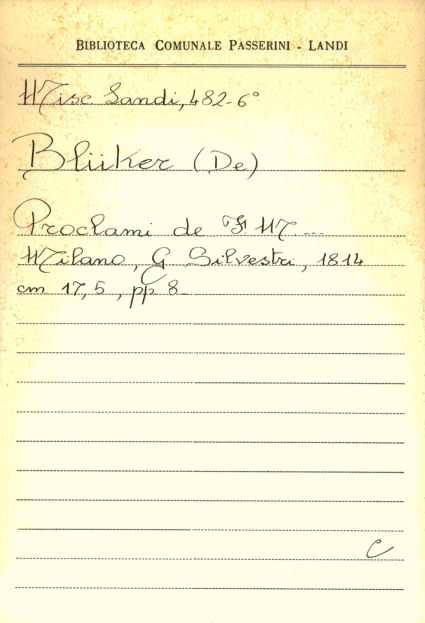 BIBLIOTECA COMUNALE PASSERINI - LANDI
Misc. Landi, 482-6°
Blüker (De)
Proclami de F M ...
Milano, G Silvestri, 1814
cm 17,5, pp 8
C